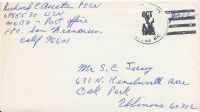 Richard C Austin PCSN
698 55 30 USN
Post Office
F.P.O. San Francisco,
Calif 96601
Mr. S. C. Terry
671 N. Kenilworth Ave
Oak Park
Illinois 60302